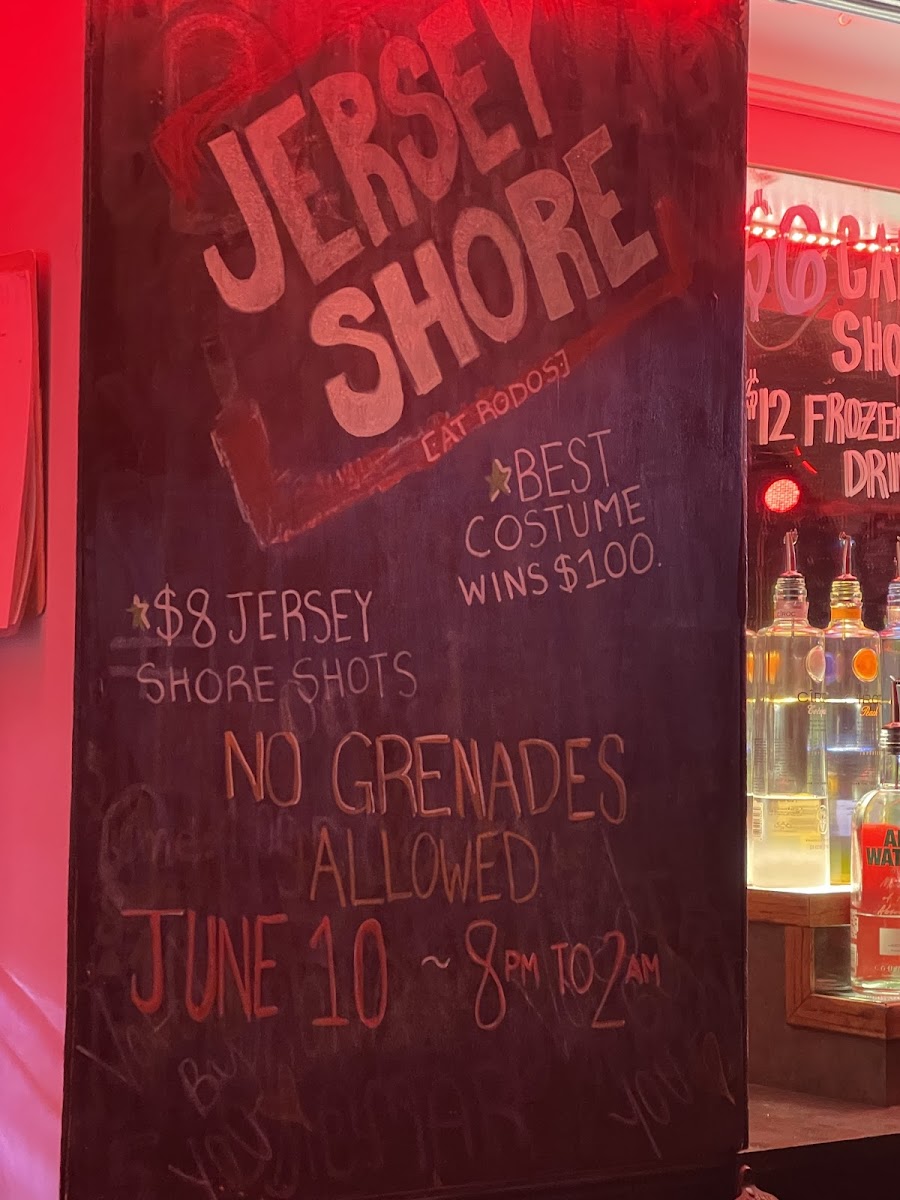 JERSEY
SHORE
[AT RODOS:]
BEST
COSTUME
WINS $100.
$8 JERSEY
SHORE SHOTS
NO GRENADES
ALLOWED
JUNE 10 ~ 8PM TO 2AM
BU
YOU
YOU
$6
SHO
$12 FROZEN
DRI
WAT